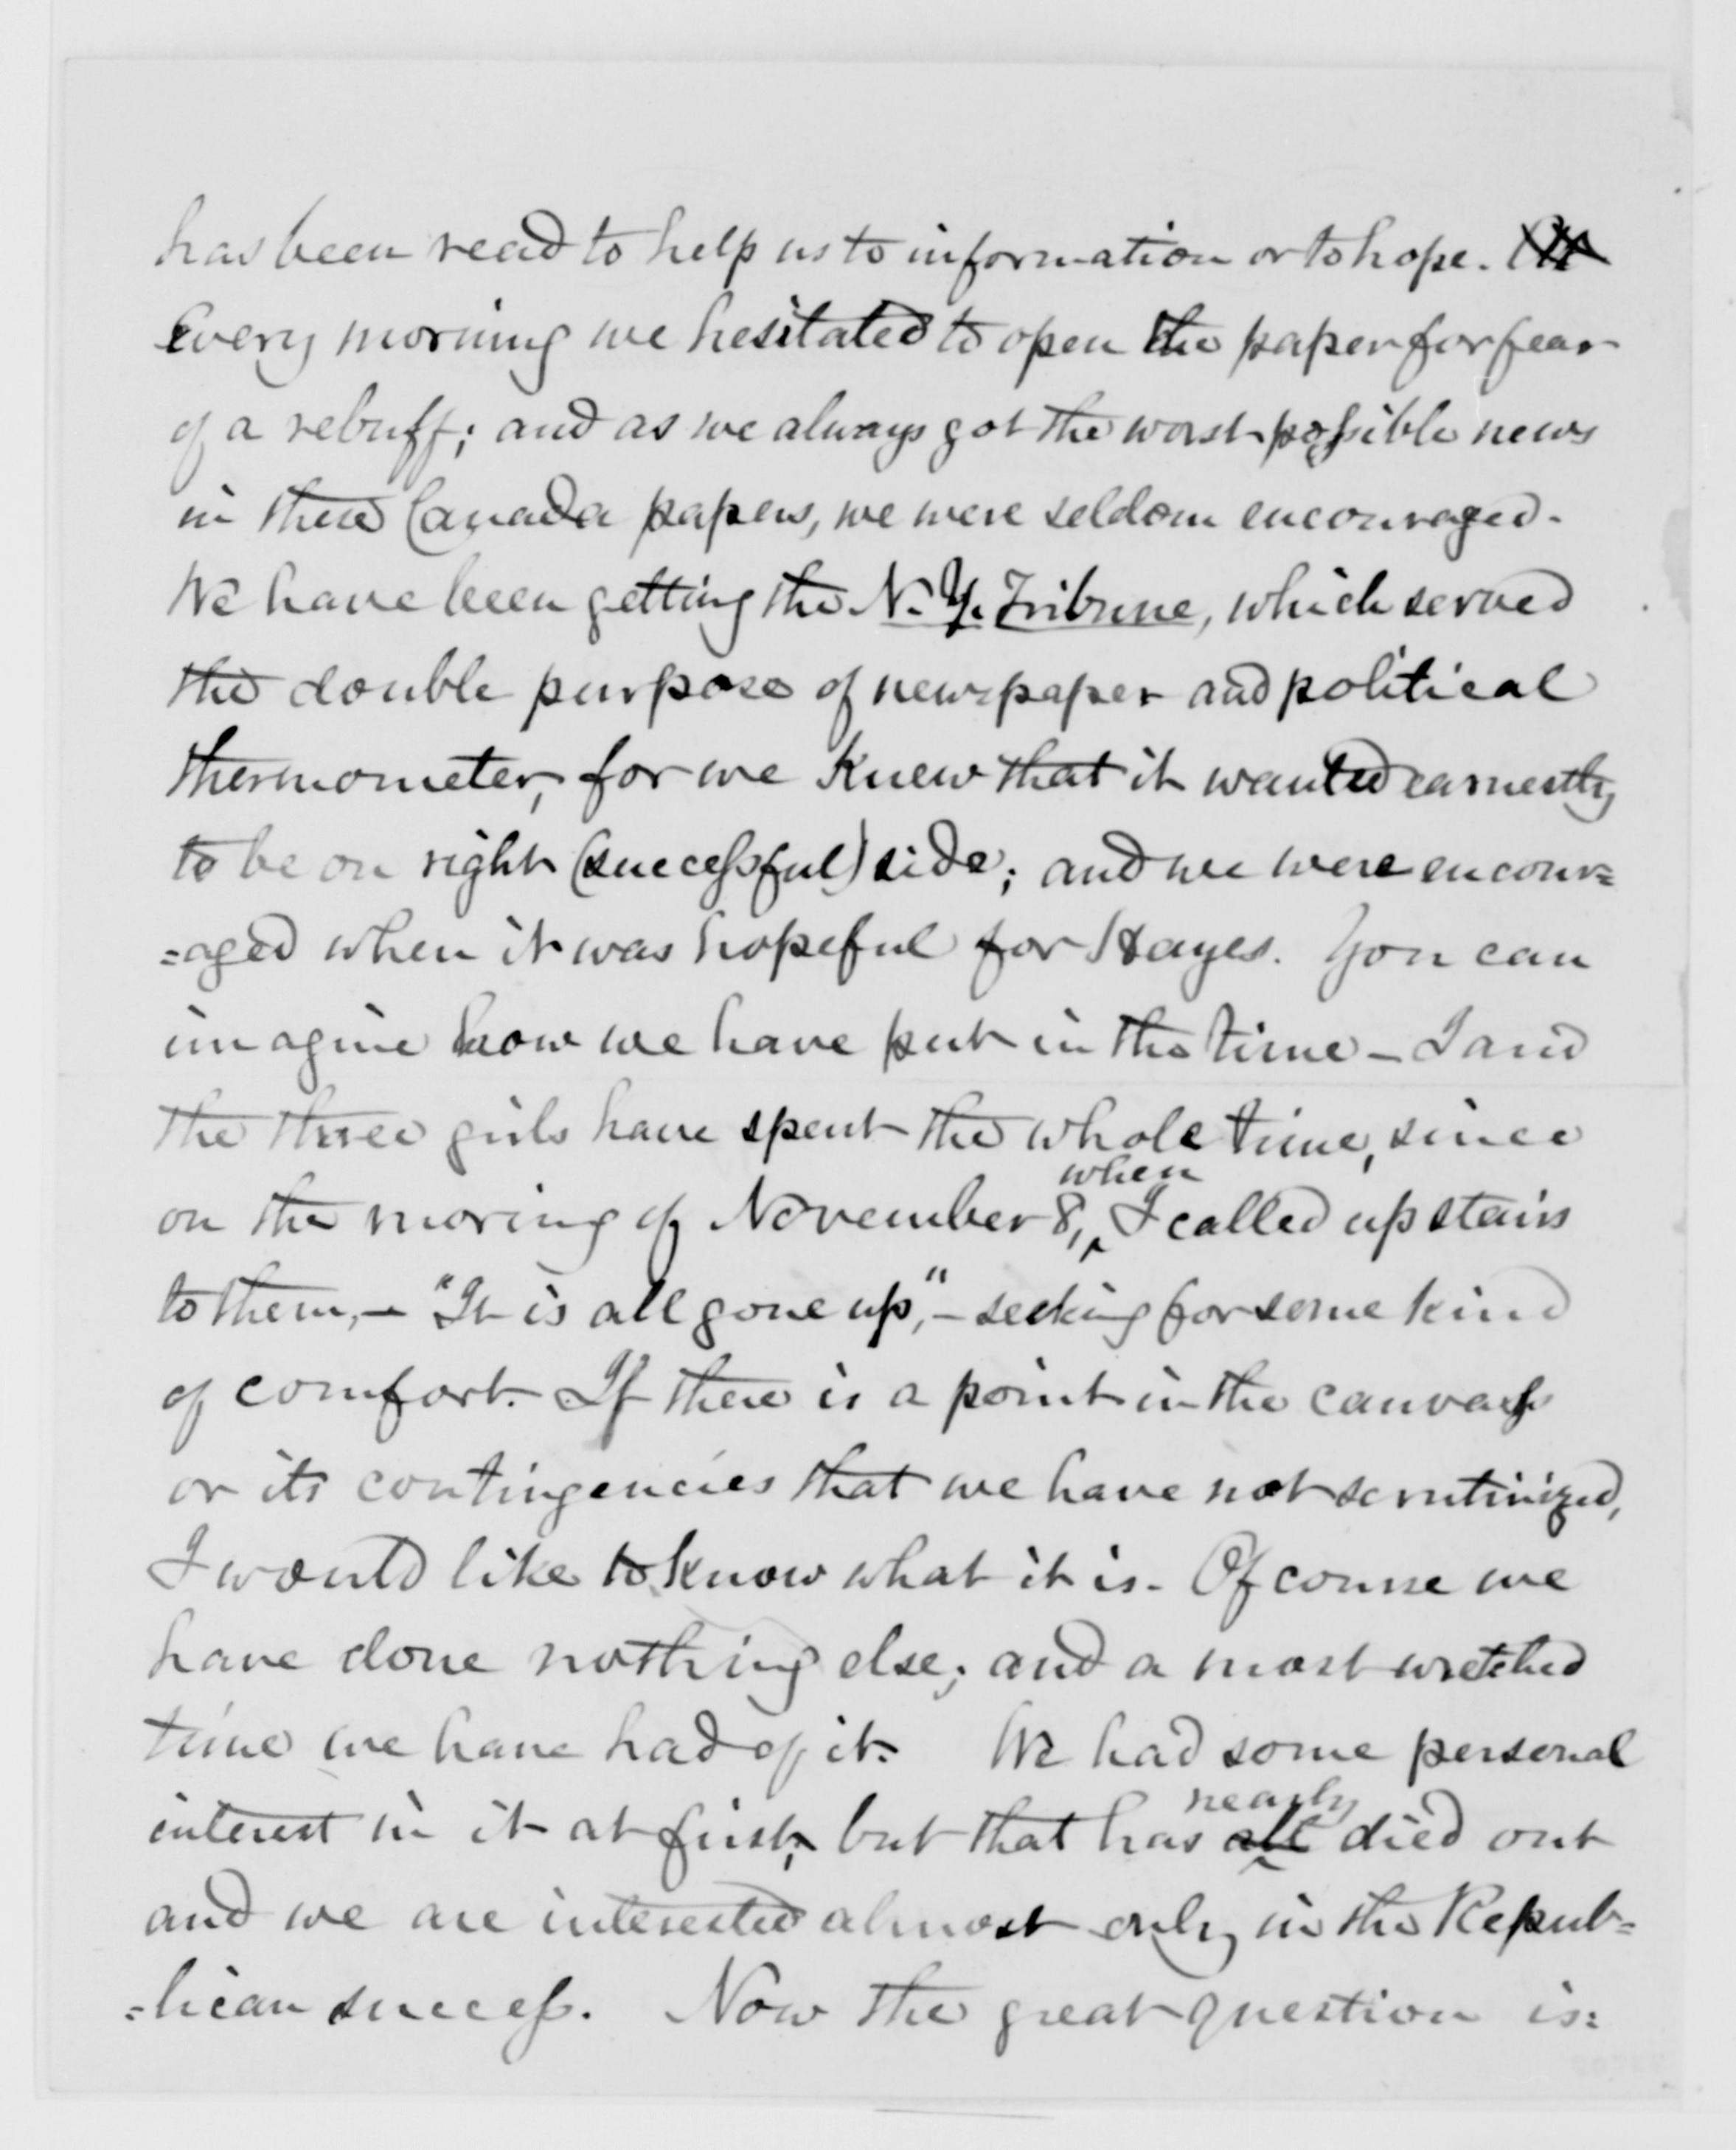 has been read to help us to information or to hope.
Every morning we hesitated to open the paper for fear
of a rebuff; and as we always got the worst possible news
in these Canada papers, we were seldom encouraged.
We have been getting the N. Y. Tribune, which served
the double purpose of newspaper and political
thermometer, for we knew that it wanted earnestly
to be on right (successful) side; and we were encour=
=aged when it was hopeful for Hayes. You can
imagine how we have put in the time – I and
the three girls have spent the whole time, since
when
on the moring of November 8, I called up stairs
to them, – "It is all gone up," – seeking for some kind
of comfort. If there is a point in the canvass
or its contingencies that we have not scrutinized,
I would like to know what it is. Of course we
have done nothing else; and a most wretched
time we have had of it. We had some personal
nearly
interest in it at first, but that has all died out
and we are interested almost only in the Repub=
=lican success. Now the great question is: